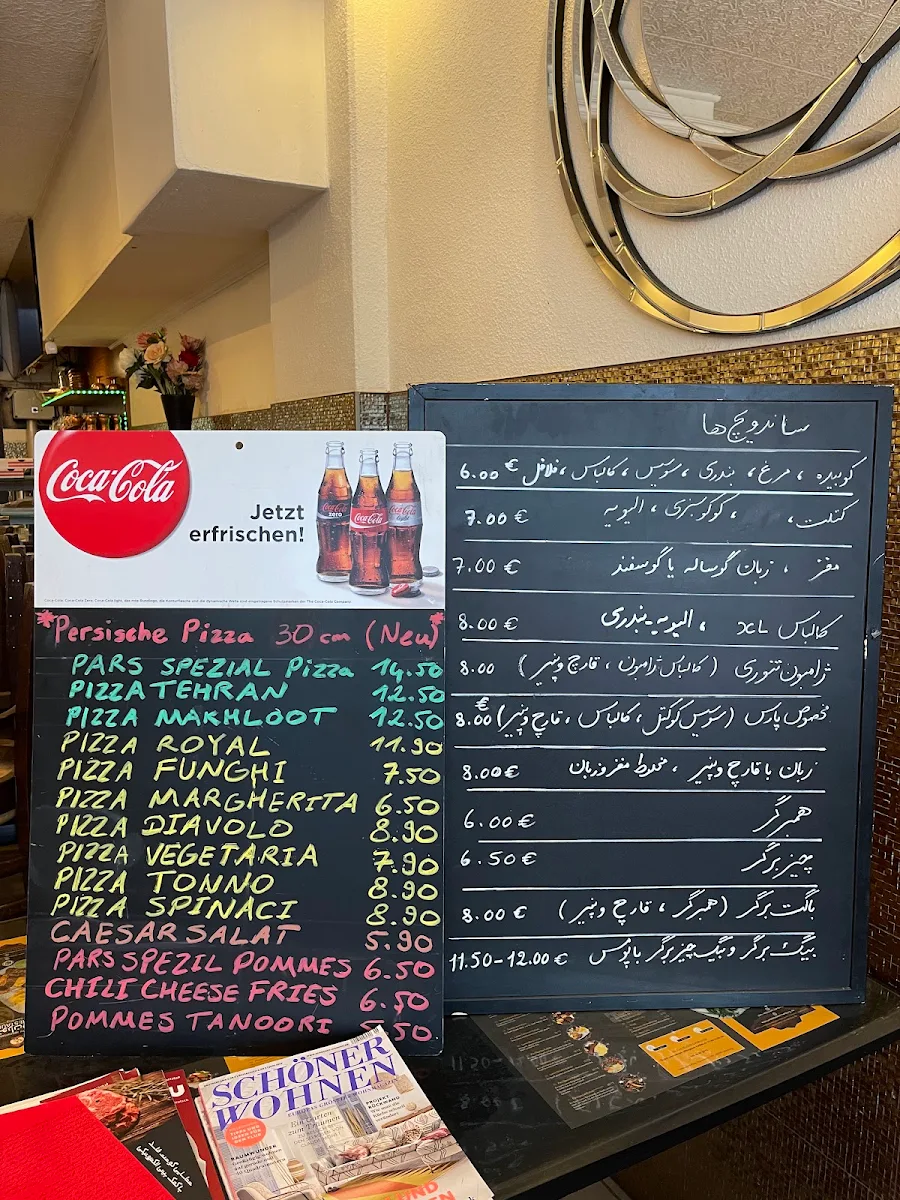 Coca-Cola
Jetzt
erfrischen!
*Persische Pizza 30 cm (Neu)*
PARS SPEZIAL Pizza 14.50
PIZZA TEHRAN 12.50
PIZZA MAKHLOOT 12.50
PIZZA ROYAL 11.90
PIZZA FUNGHI 7.50
PIZZA MARGHERITA 6.50
PIZZA DIAVOLO 8.90
PIZZA VEGETARIA 7.90
PIZZA TONNO 8.90
PIZZA SPINACI 8.90
CAESAR SALAT 5.90
PARS SPEZIL POMMES 6.50
CHILI CHEESE FRIES 6.50
POMMES TANOORI 5.50
ساندویچ‌ها
کوبیده ، مرغ ، بندری ، سوسیس ، کالباس ، فلافل 6.00 €
کتلت ، ، کوکوسبزی ، الیویه 7.00 €
مغز ، زبان گوساله یا گوسفند 7.00 €
کالباس XL ، الیویه-بندری 8.00 €
ژامبون تنوری ( کالباس ژامبون ، قارچ و پنیر ) 8.00
مخصوص پارس (سوسیس کوکتل ، کالباس ، قارچ و پنیر) 8.00 €
زبان با قارچ و پنیر ، مخلوط مغز و زبان 8.00 €
همبرگر 6.00 €
چیزبرگر 6.50 €
باگت برگر (همبرگر ، قارچ و پنیر ) 8.00 €
بیگ برگر و بیگ چیزبرگر با پوُمس 11.50-12.00 €
SCHÖNER
WOHNEN
EUROPAS GRÖSSTES WOHNMAGAZIN